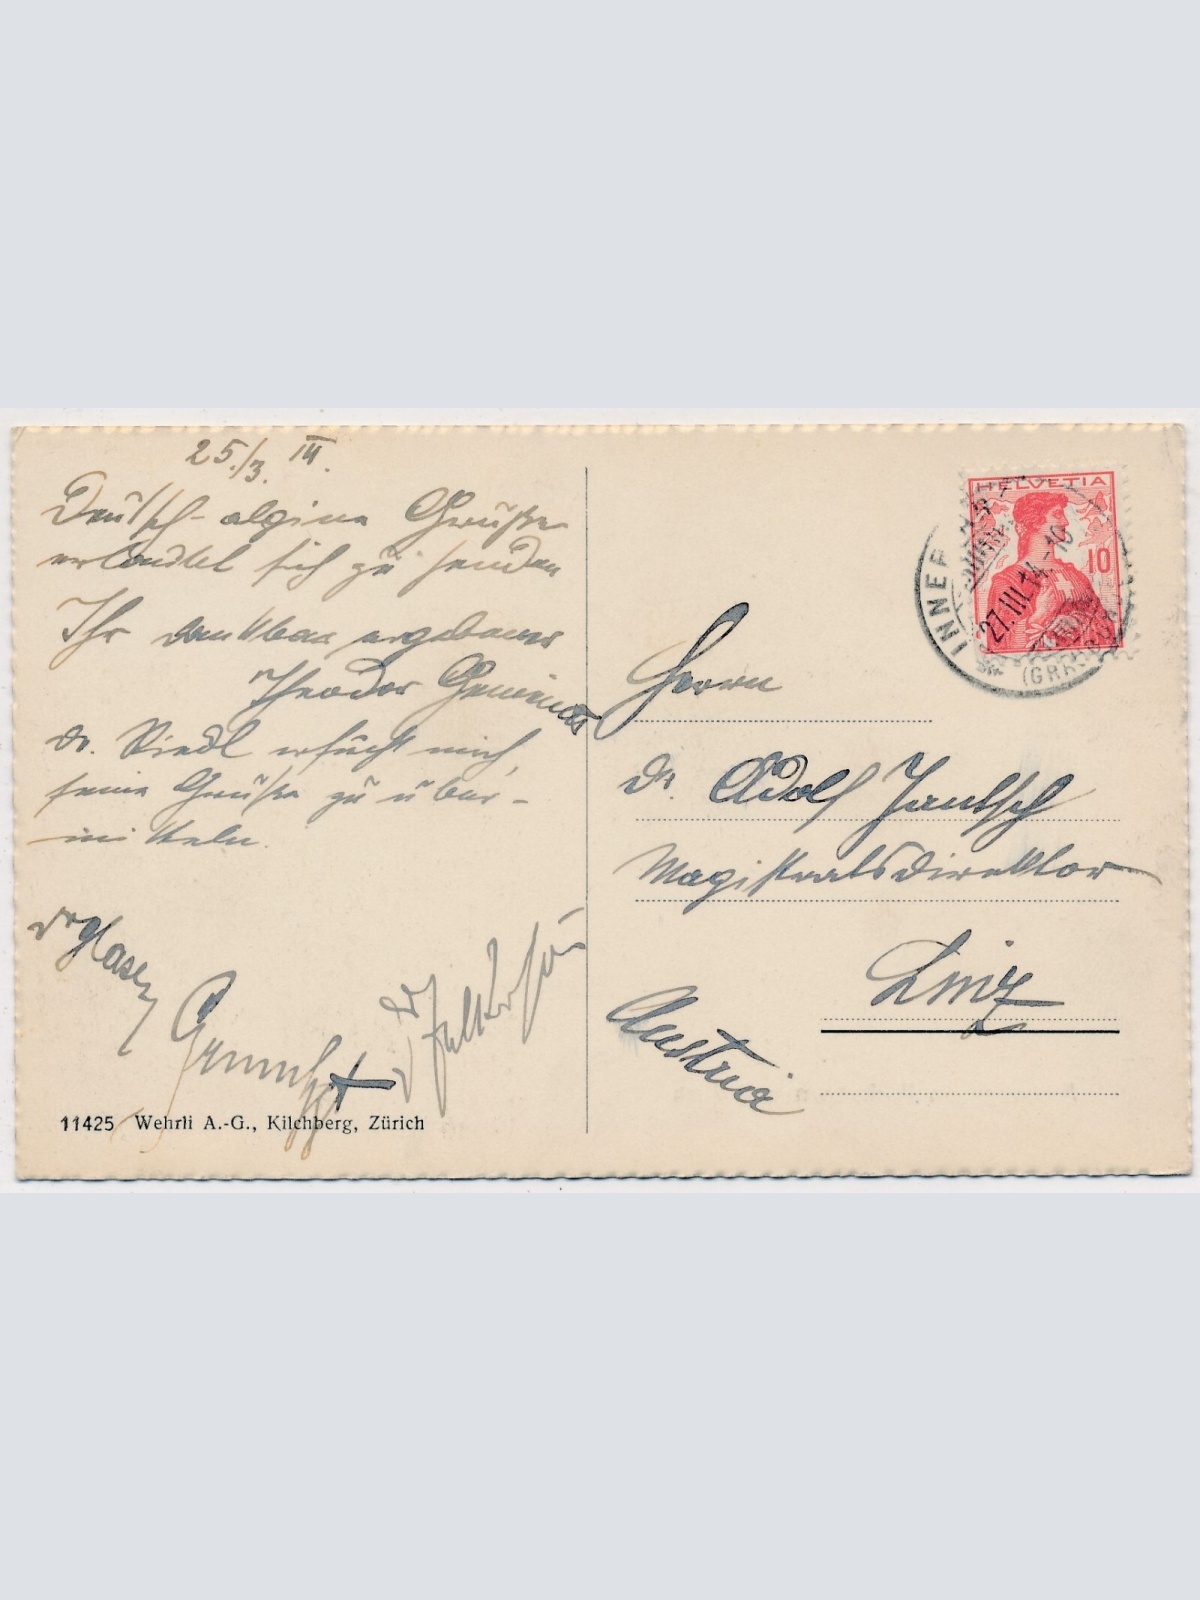 25./3. III.
Deutsch-alpine Grüße
erlaubt sich zu senden
Ihr dankbar ergebener
Theodor
Dr. Riedl ersucht mich,
seine Grüße zu über-
mitteln.
Dr
11425 Wehrli A.-G., Kilchberg, Zürich
HELVETIA
10
INNER
27.III.14.-10
(GRA
Herrn
Dr. Adolf Jantsch
Magistratsdirektor
Linz
Austria